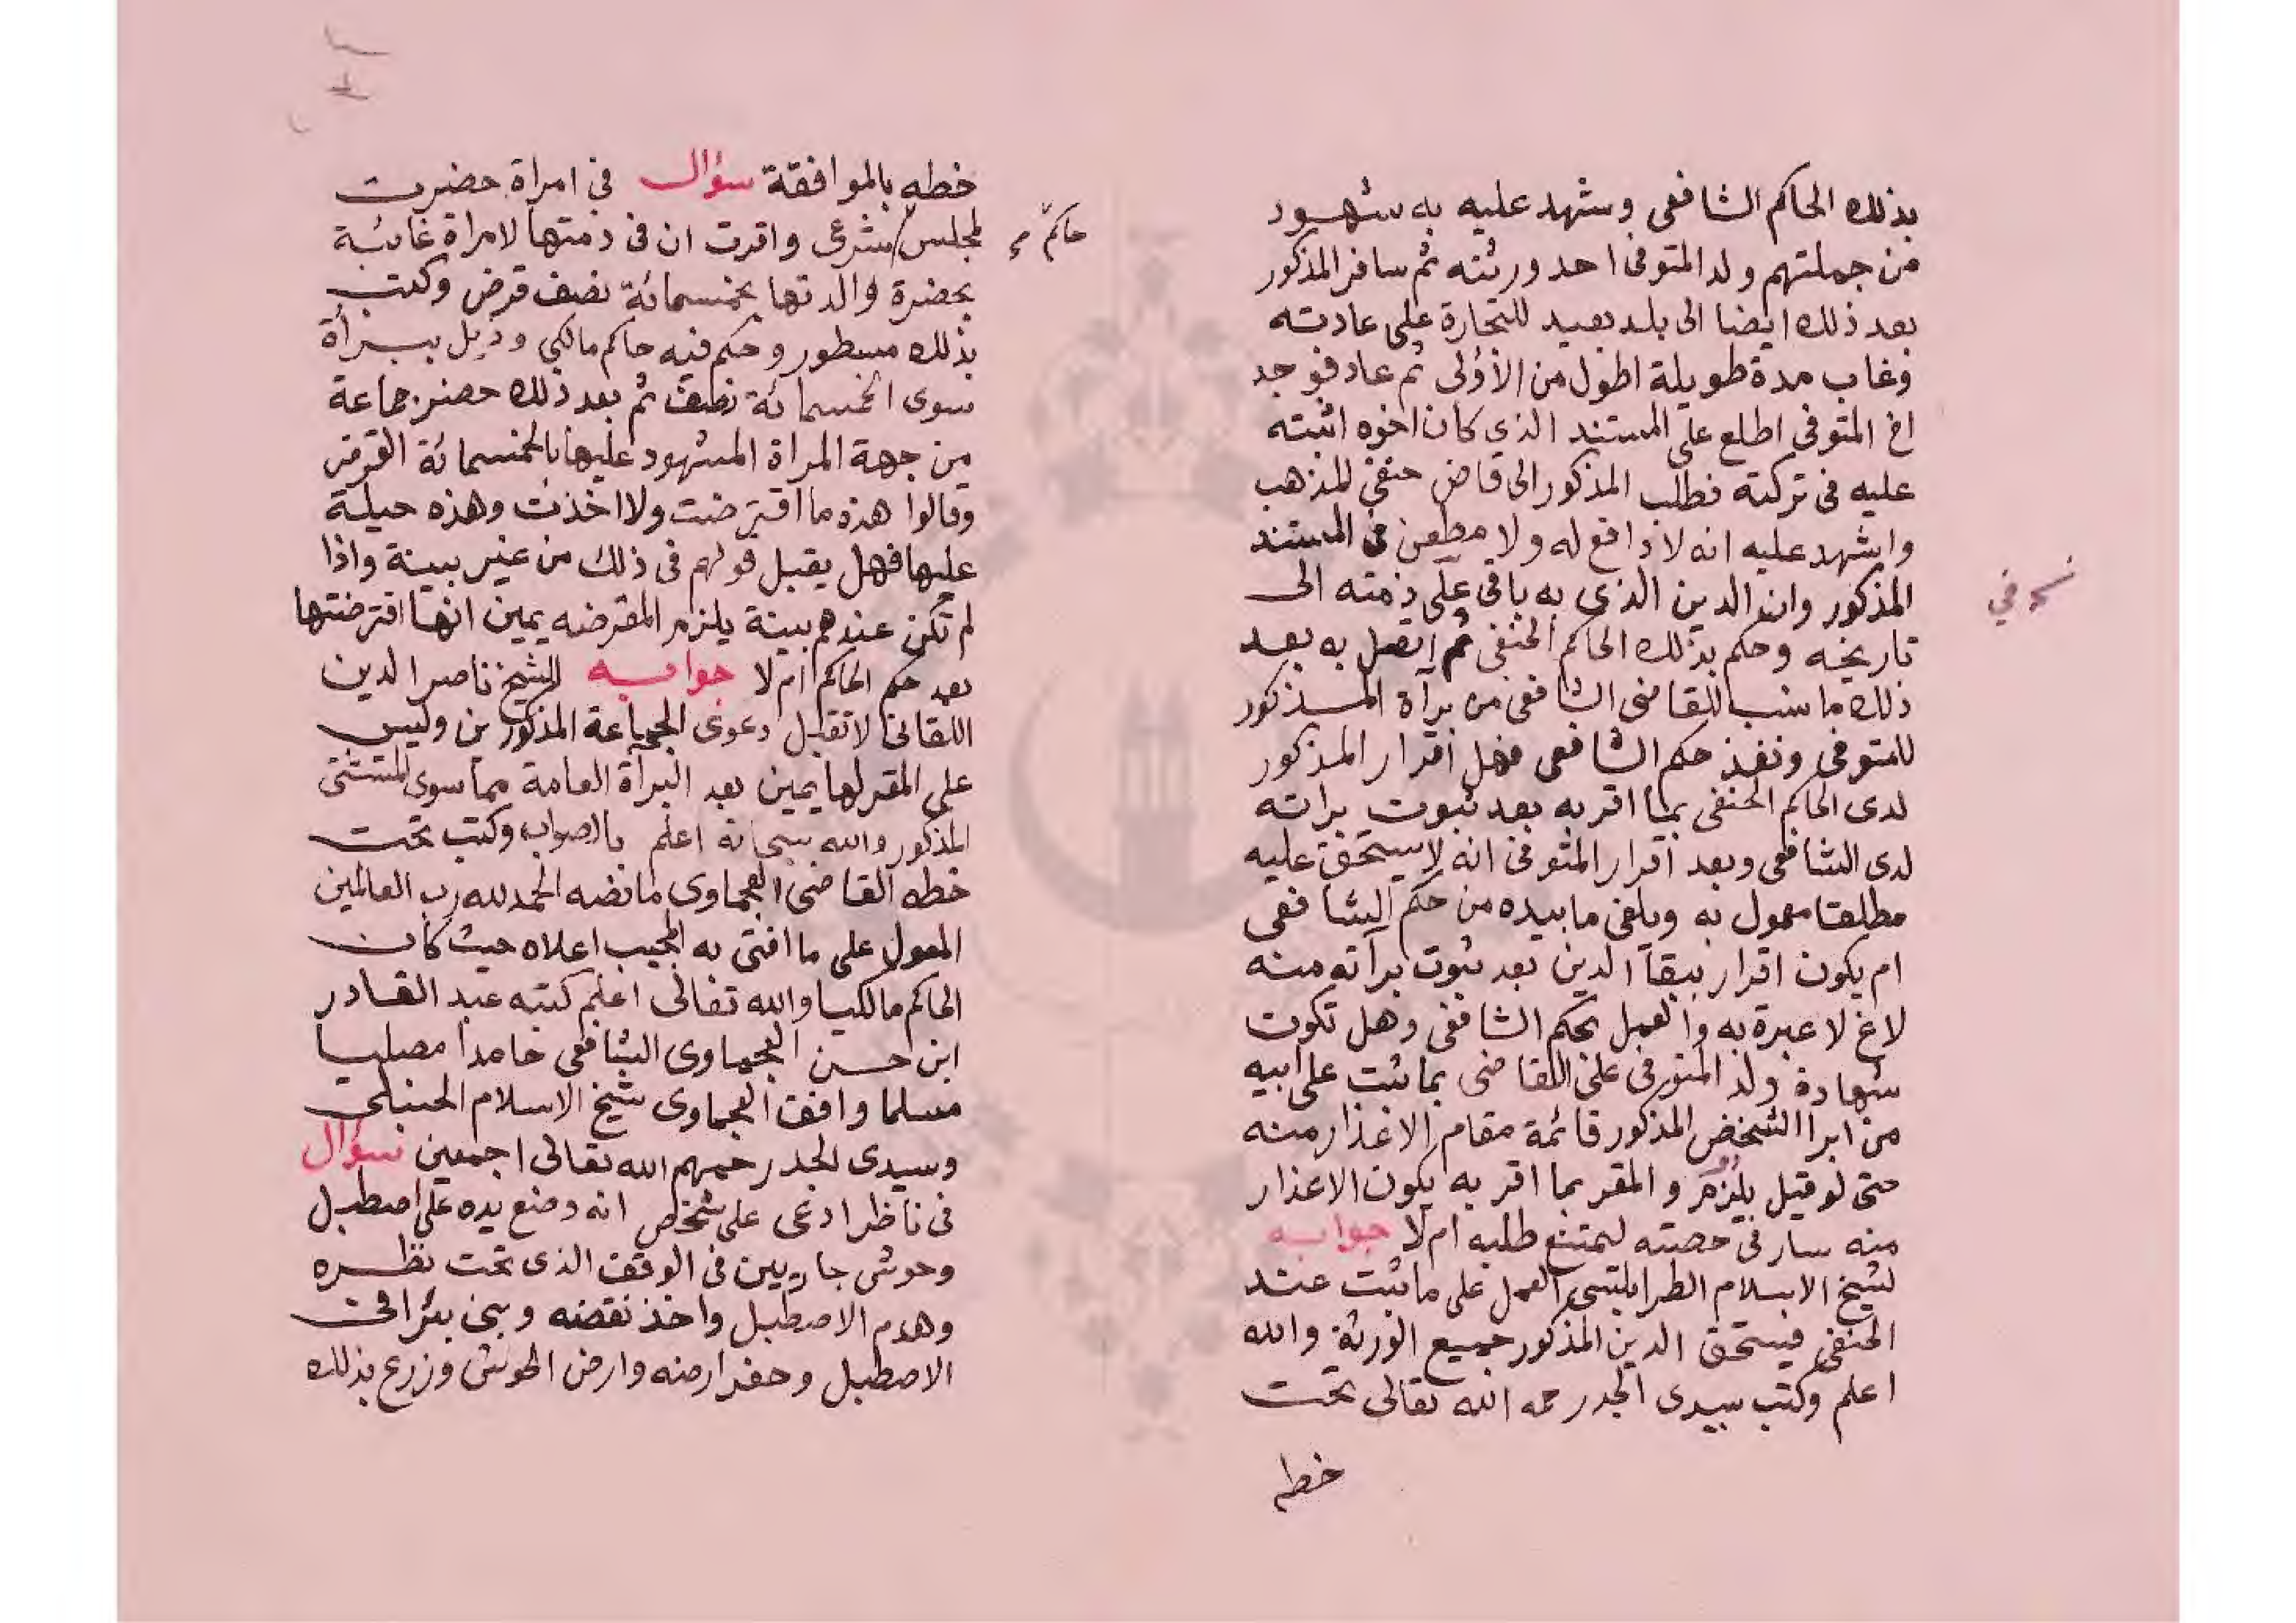 بذلك الحاكم الشافعى وشهد عليه به شهود
من جملتهم ولد المتوفى احد ورثته ثم سافر المذكور
بعد ذلك ايضا الى بلد بعيد للتجارة على عادته
وغاب مدة طويلة اطول من الأولى ثم عاد فوجد
اخ المتوفى اطلع على المستند الذى كان اخوه اثبته
عليه فى تركته فطلب المذكور الى قاض حنفى المذهب
واشهد عليه انه لا دافع له ولا مطعن فى المستند
المذكور وان الدين الذى به باقى على ذمته الى
تاريخه وحكم بذلك الحاكم الحنفى ثم اتصل به بعد
ذلك ما نسب للقاضى الشافعى من برآة المذكور
للمتوفى ونفذ حكم الشافعى فهل اقرار المذكور
لدى الحاكم الحنفى بما اقر به بعد ثبوت براته
لدى الشافعى وبعد اقرار المتوفى انه لا يستحق عليه
مطلقا معمول به ويلغى ما بيده من حكم الشافعى
ام يكون اقرار ببقآ الدين بعد ثبوت برآته منه
لاغ لا عبرة به والعمل بحكم الشافعى وهل تكون
شهادة ولد المتوفى على القاضى بما ثبت على ابيه
من ابرا الشخص المذكور قائمة مقام الاعذار منه
حتى لو قيل يلزم المقر بما اقر به يكون الاعذار
منه سار فى حصته ليمتنع طلبه ام لا جوابه
لشيخ الاسلام الطرابلسى العمل على ما ثبت عند
الحنفى فيستحق الدين المذكور جميع الورثة والله
اعلم وكتب سيدى الجد رحمه الله تعالى تحت
خطه
خطه بالموافقة سؤال فى امراة حضرت
لمجلس شرعى واقرت ان فى ذمتها لامراة غائبة
حاكم
بحضرة والدتها بخمسمائة نصف قرض وكتب
بذلك مسطور وحكم فيه حاكم مالكى وذيل ببرأة
سوى الخمسمائة نصف ثم بعد ذلك حضر جماعة
من جهة المراة المشهود عليها بالخمسمائة القرض
وقالوا هذه ما اقترضت ولا اخذت وهذه حيلة
عليها فهل يقبل قولهم فى ذلك من غير بينة واذا
لم تكن عندهم بينة يلزم المقرضه يمين انها اقترضتها
بعد حكم الحاكم ام لا جوابه للشيخ ناصر الدين
اللقانى لا تقبل دعوى الجماعة المذكورين وليس
على المقر لها يمين بعد البرآة العامة مما سوى المستثنى
المذكور والله سبحانه اعلم بالصواب وكتب تحت
خطه القاضى العجماوى ما نصه الحمد لله رب العالمين
المعول على ما افتى به المجيب اعلاه حيث كان
الحاكم مالكيا والله تعالى اعلم كتبه عبد القادر
ابن حسن العجماوى الشافعى حامدا مصليا
مسلما وافق العجماوى شيخ الاسلام الحنبلى
وسيدى الجد رحمهم الله تعالى اجمعين سؤال
فى ناظر ادعى على شخص انه وضع يده على اصطبل
وحوش جاريين فى الوقف الذى تحت نظره
وهدم الاصطبل واخذ نقضه وبنى بئرا فى
الاصطبل وحفر ارضه وارض الحوش وزرع بذلك